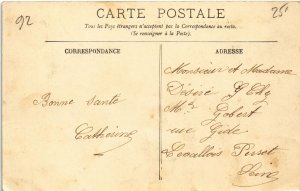 92
25c
CARTE POSTALE
Tous les Pays étrangers n'acceptent pas la Correspondance au recto.
(Se renseigner à la Poste).
CORRESPONDANCE
ADRESSE
Bonne santé
Catherine
Monsieur et Madame
Désiré
Gobert
rue Gide
Levallois Perret
Seine